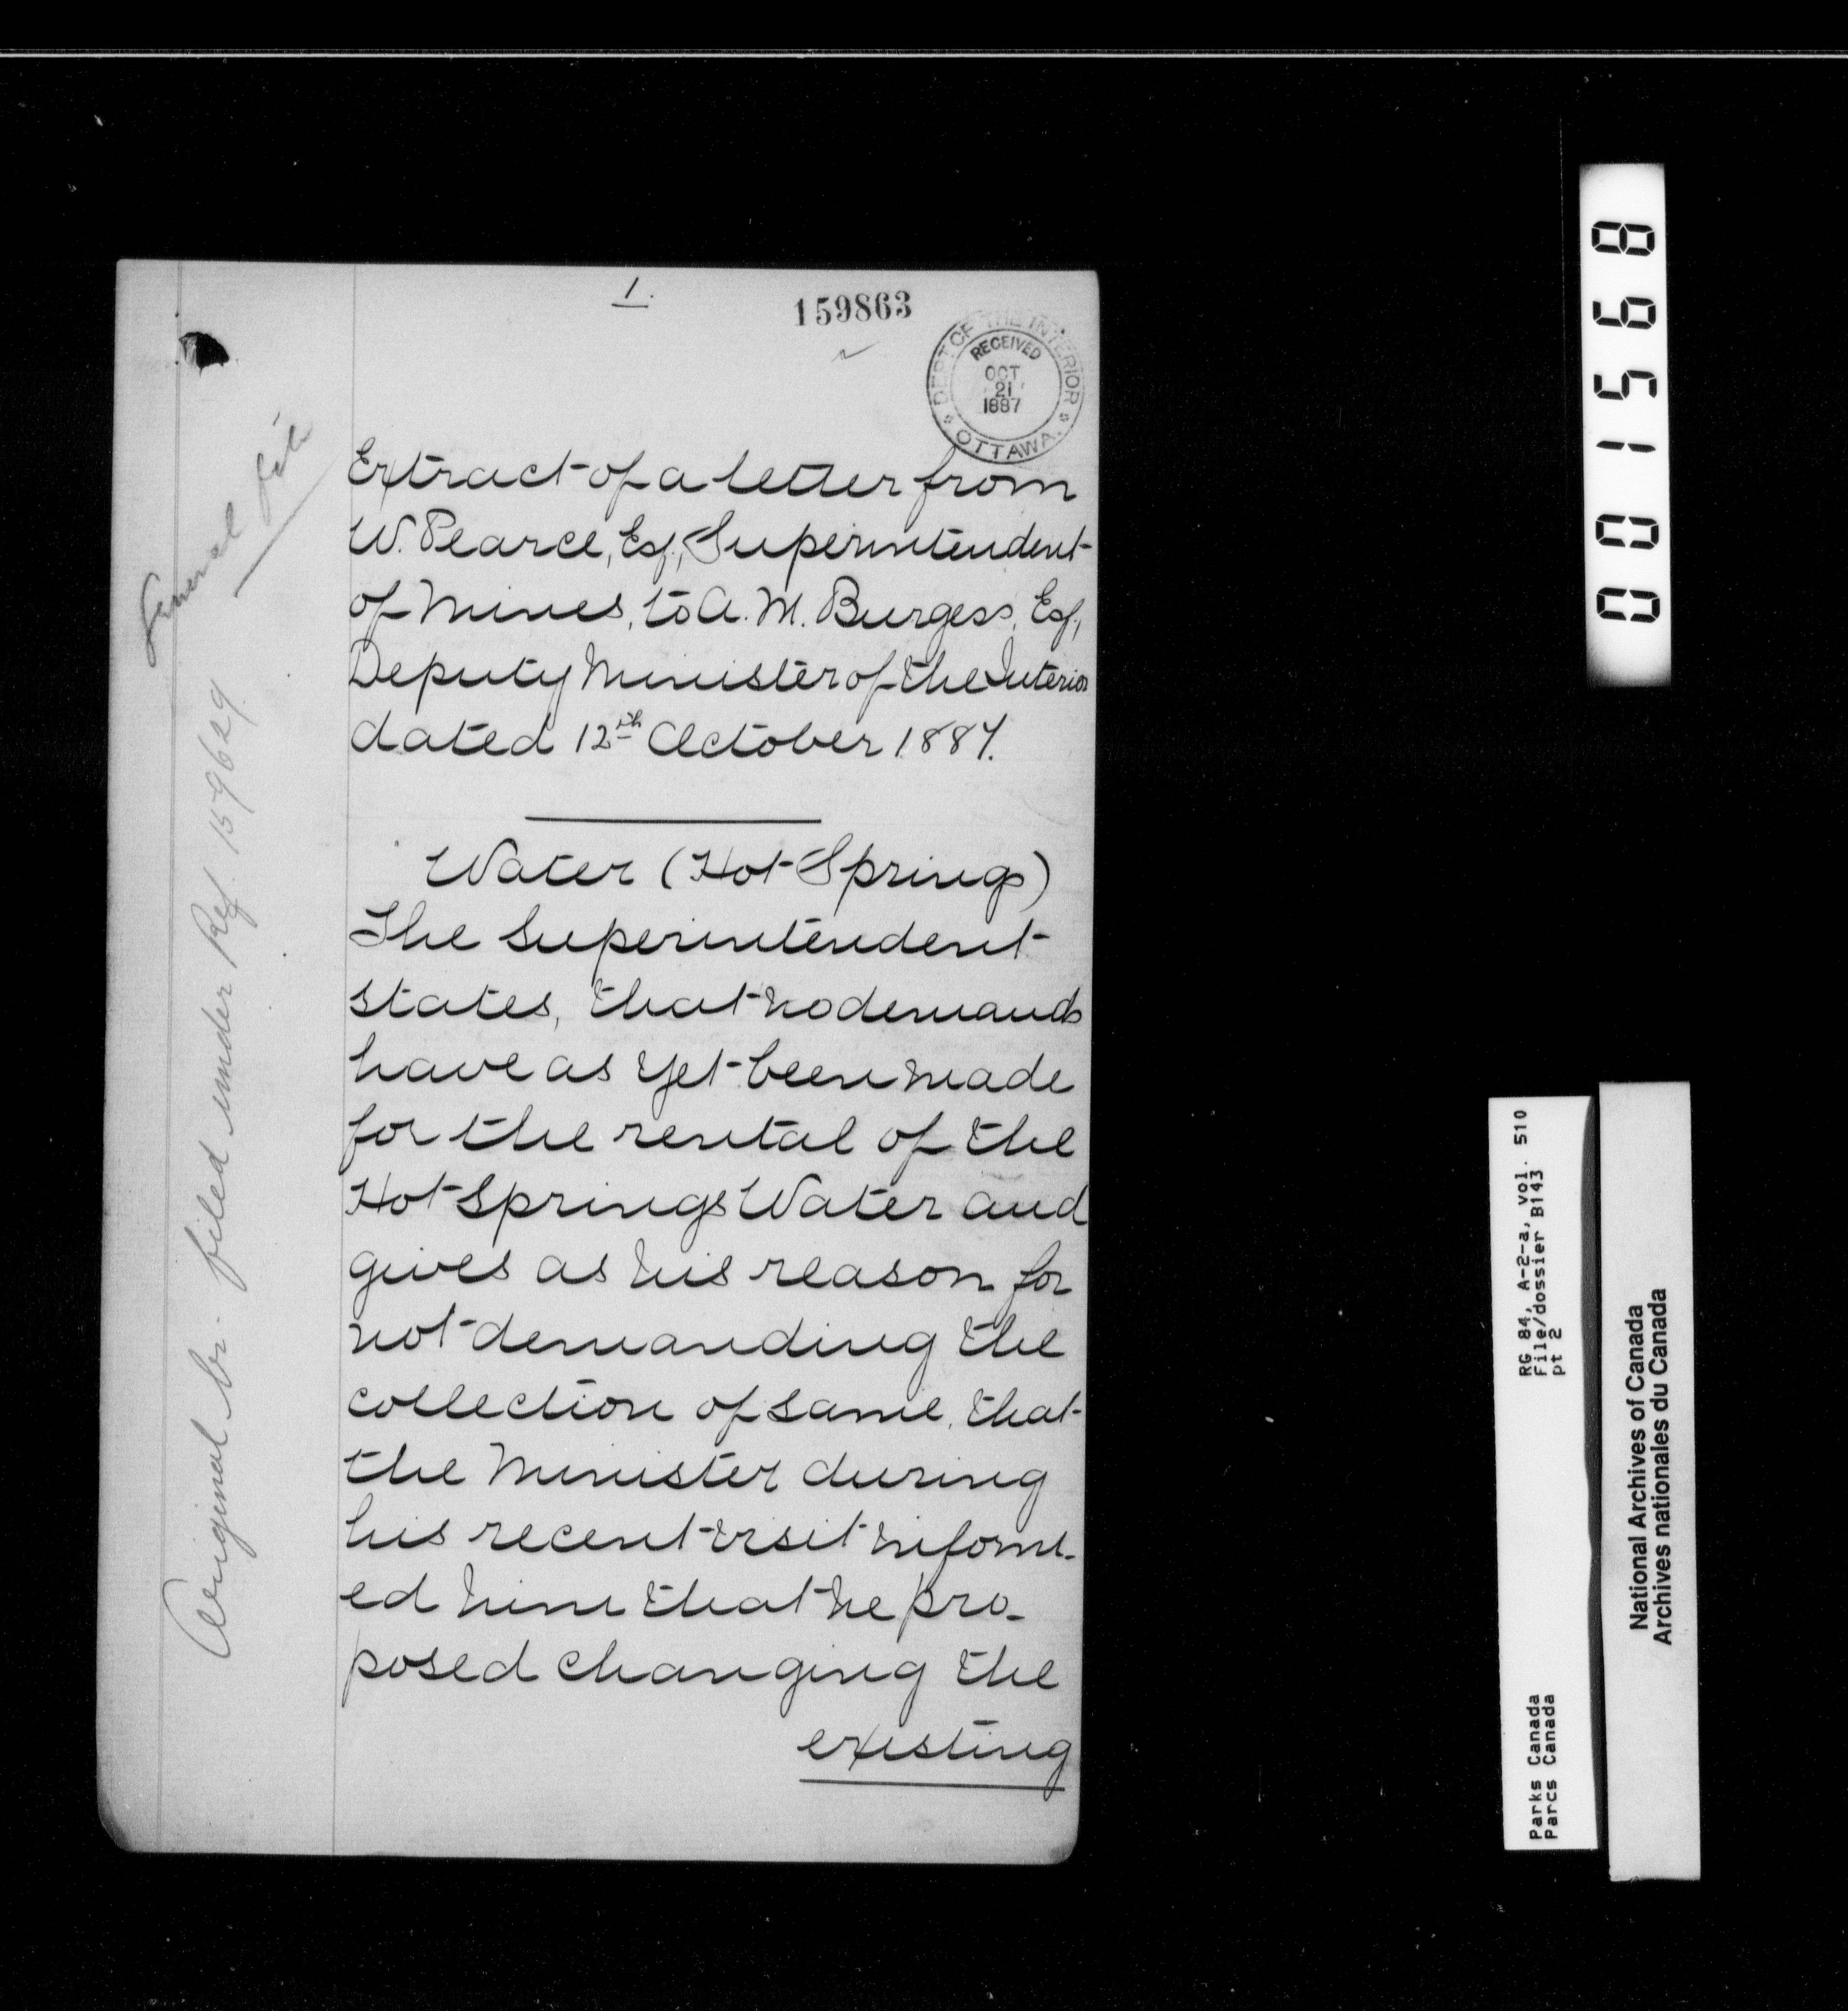 1.
159863
DEPT OF THE INTERIOR
RECEIVED
OCT
21
1887
OTTAWA.
Extract of a letter from
W. Pearce, Esq., Superintendent
of Mines, to A. M. Burgess, Esq.,
Deputy Minister of the Interior
dated 12th October 1887.
Water (Hot Springs)
The Superintendent
states, that no demands
have as yet been made
for the rental of the
Hot Springs Water and
gives as his reason for
not demanding the
collection of same, that
the Minister during
his recent visit inform-
ed him that he pro-
posed changing the
existing
General file
Original filed under Ref. 159629
0001568
RG 84, A-2-a, vol. 510
File/dossier B143
pt 2
Parks Canada
Parcs Canada
National Archives of Canada
Archives nationales du Canada